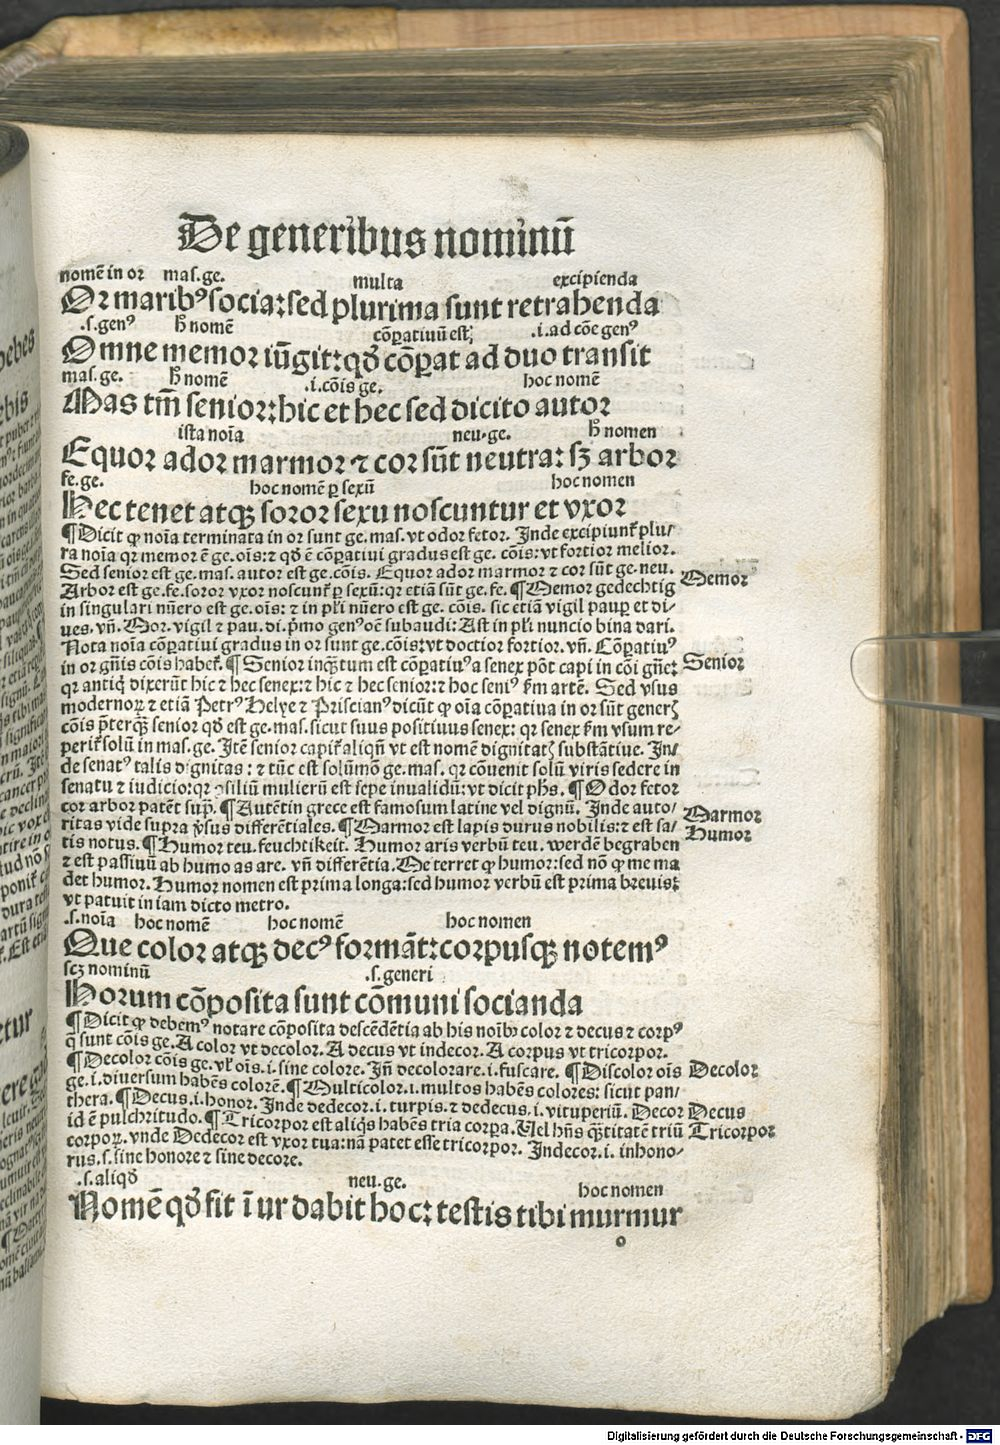 De generibus nominū
nomē in or mas.ge. multa excipienda
Or maribꝰ socia: sed plurima sunt retrahenda
.s.genꝰ h̄ nomē cōꝑatiuū est; .i.ad cōe genꝰ
Omne memor iūgit: qđ cōꝑat ad duo transit
mas.ge. h̄ nomē .i.cōis ge. hoc nomē
Mas tm̄ senior: hic et hec sed dicito autor
ista noīa neu.ge. h̄ nomen
Equor ador marmor ⁊ cor sūt neutra: sꝫ arbor
fe.ge. hoc nomē ꝑ sexū hoc nomen
Hec tenet atqꝫ soror sexu noscuntur et vxor
¶Dicit ꝙ noīa terminata in or sunt ge.mas.vt odor fetor. Inde excipiunt̄ plu/
ra noīa qr memor ē ge.oīs: ⁊ qđ ē cōꝑatiui gradus est ge. cōis: vt fortior melior.
Sed senior est ge.mas. autor est ge.cōis. Equor ador marmor ⁊ cor sūt ge.neu.
Arbor est ge.fe. soror vxor noscunt̄ ꝑ sexū: qr etiā sūt ge.fe. ¶Memor gedechtig
Memor
in singulari nūero est ge.oīs: ⁊ in pl̄i nūero est ge. cōis. sic etiā vigil pauꝑ et di/
ues. vn̄. Mor. vigil ⁊ pau. di. pͥmo genꝰ oē subaudi: Ast in pl̄i nuncio bina dari.
Nota noīa cōꝑatiui gradus in or sunt ge.cōis: vt doctior fortior. vn̄. Cōꝑatiuꝰ
in or gn̄is cōis habet̄. ¶Senior inqꝫtum est cōꝑatiuꝰ a senex pōt capi in cōi gn̄e:
Senior
qr antiq̇ dixerūt hic ⁊ hec senex: ⁊ hic ⁊ hec senior: ⁊ hoc seniꝰ ẜm artē. Sed vsus
modernoꝝ ⁊ etiā Petrꝰ Helye ⁊ Priscianꝰ dicūt ꝙ oīa cōꝑatiua in or sūt generꝭ
cōis p̄terqꝫ senior qđ est ge.mas. sicut suus positiuus senex: qr senex ẜm vsum re/
perit̄ solū in mas.ge. Itē senior capit̄ aliqn̄ vt est nomē dignitatꝭ substātiue. In/
de senatꝰ talis dignitas: ⁊ tūc est solūmō ge.mas. qr cōuenit solū viris sedere in
senatu ⁊ iudicio: qr ꝯsiliū mulierū est sepe inualidū: vt dicit ph̄s. ¶Odor fetor
cor arbor patēt sup̄. ¶Autētin grece est famosum latine vel dignū. Inde auto/
Marmor
ritas vide supra ꝟsus differētiales. ¶Marmor est lapis durus nobilis: ⁊ est sa/
Humor
tis notus. ¶Humor teu. feuchtikeit. Humor aris verbū teu. werdē begraben
⁊ est passiuū ab humo as are. vn̄ differētia. Me terret ꝙ humor: sed nō ꝙ me ma
det humor. Humor nomen est prima longa: sed humor verbū est prima breuis:
vt patuit in iam dicto metro.
.s.noīa hoc nomē hoc nomē hoc nomen
Que color atqꝫ decꝰ formāt: corpusqꝫ notemꝰ
scꝫ nominū .s.generi
Horum cōposita sunt cōmuni socianda
¶Dicit ꝙ debemꝰ notare cōposita descēdētia ab his noībꝰ color ⁊ decus ⁊ corpꝰ
q̄ sunt cōis ge. A color vt decolor. A decus vt indecor. A corpus vt tricorpor.
¶Decolor cōis ge. vl̄ oīs.i.sine colore. Jn̄ decolorare.i.fuscare. ¶Discolor oīs
Decolor
ge.i.diuersum habēs colorē. ¶Multicolor.i.multos habēs colores: sicut pan/
thera. ¶Decus.i.honor. Inde dedecor.i.turpis. ⁊ dedecus.i.vituperiū. Decor
Decus
id ē pulchritudo. ¶Tricorpor est aliqs habēs tria corꝑa. Vel hn̄s qꝫtitatē triū
Tricorpor
corporꝝ. vnde Dedecor est vxor tua: nā patet esse tricorpor. Indecor.i.inhono/
rus.s.sine honore ⁊ sine decore.
.s.aliqđ neu.ge. hoc nomen
Nomē qđ fit ī ur dabit hoc: testis tibi murmur
o
Digitalisierung gefördert durch die Deutsche Forschungsgemeinschaft - DFG